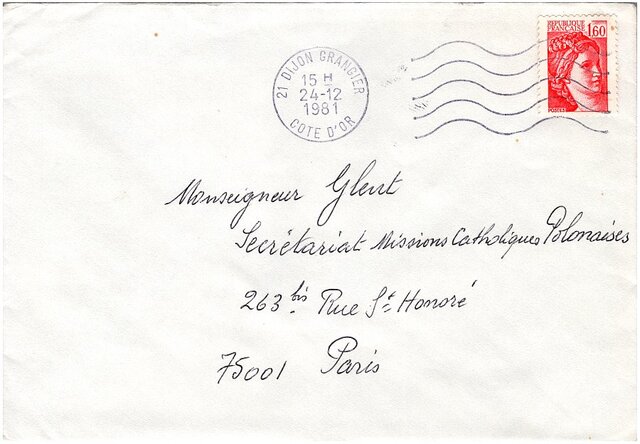 REPUBLIQUE
FRANCAISE
1,60
POSTES
21 DIJON GRANGIER
15 H
24-12
1981
COTE D'OR
Monseigneur Glent
Secrétariat Missions Catholiques Polonaises
263 bis Rue St Honoré
75001 Paris